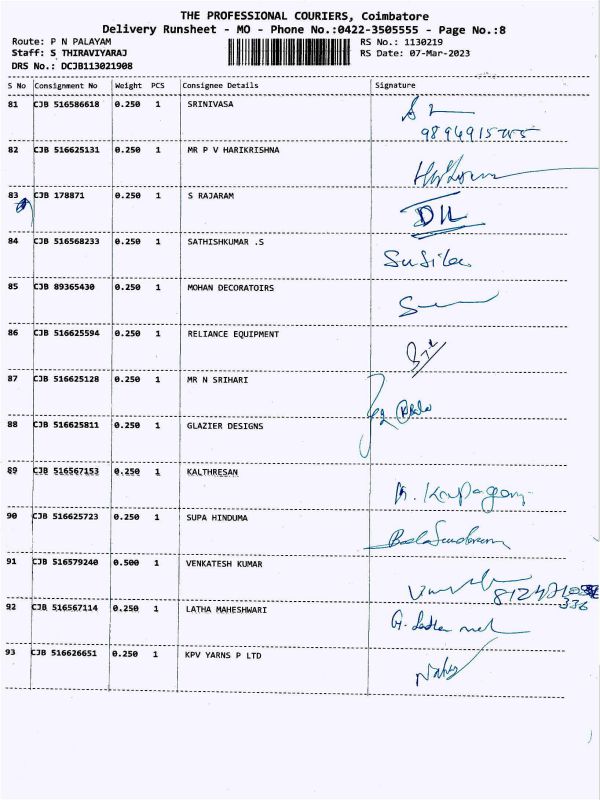 THE PROFESSIONAL COURIERS, Coimbatore
Delivery Runsheet - MO - Phone No.:0422-3505555 - Page No.:8
Route: P N PALAYAM
Staff: S THIRAVIYARAJ
DRS No.: DCJB113021908
RS No.: 1130219
RS Date: 07-Mar-2023
S No Consignment No Weight PCS Consignee Details Signature
81 CJB 516586618 0.250 1 SRINIVASA
82 CJB 516625131 0.250 1 MR P V HARIKRISHNA
83 CJB 178871 0.250 1 S RAJARAM
84 CJB 516568233 0.250 1 SATHISHKUMAR .S
Susila
85 CJB 89365430 0.250 1 MOHAN DECORATOIRS
86 CJB 516625594 0.250 1 RELIANCE EQUIPMENT
87 CJB 516625128 0.250 1 MR N SRIHARI
88 CJB 516625811 0.250 1 GLAZIER DESIGNS
89 CJB 516567153 0.250 1 KALTHRESAN
90 CJB 516625723 0.250 1 SUPA HINDUMA
91 CJB 516579240 0.500 1 VENKATESH KUMAR
92 CJB 516567114 0.250 1 LATHA MAHESHWARI
93 CJB 516626651 0.250 1 KPV YARNS P LTD